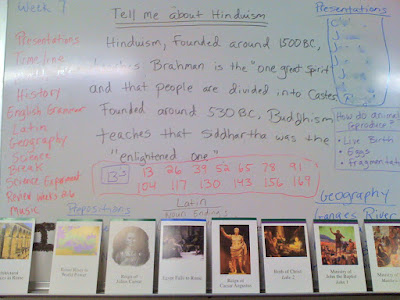 Week 7
Tell me about Hinduism
Hinduism, founded around 1500 BC,
teaches Brahman is the "one great spirit"
and that people are divided into Castes.
Founded around 530 BC, Buddhism
teaches that Siddhartha was the
"enlightened one"
Presentations
Timeline
History
English Grammar
Latin
Geography
Science
Break
Science Experiment
Review weeks
Music
Presentations
How do animals
reproduce?
• Live Birth
• Eggs
• Fragmentation
13 13 26 39 52 65 78 91
104 117 130 143 156 169
Prepositions
Latin
Noun Endings
Geography
Ganges River
Reign of
Julius Caesar
Egypt Falls to Rome
Reign of
Caesar Augustus
Birth of Christ
Luke 2
Ministry of
John the Baptist
Ministry of